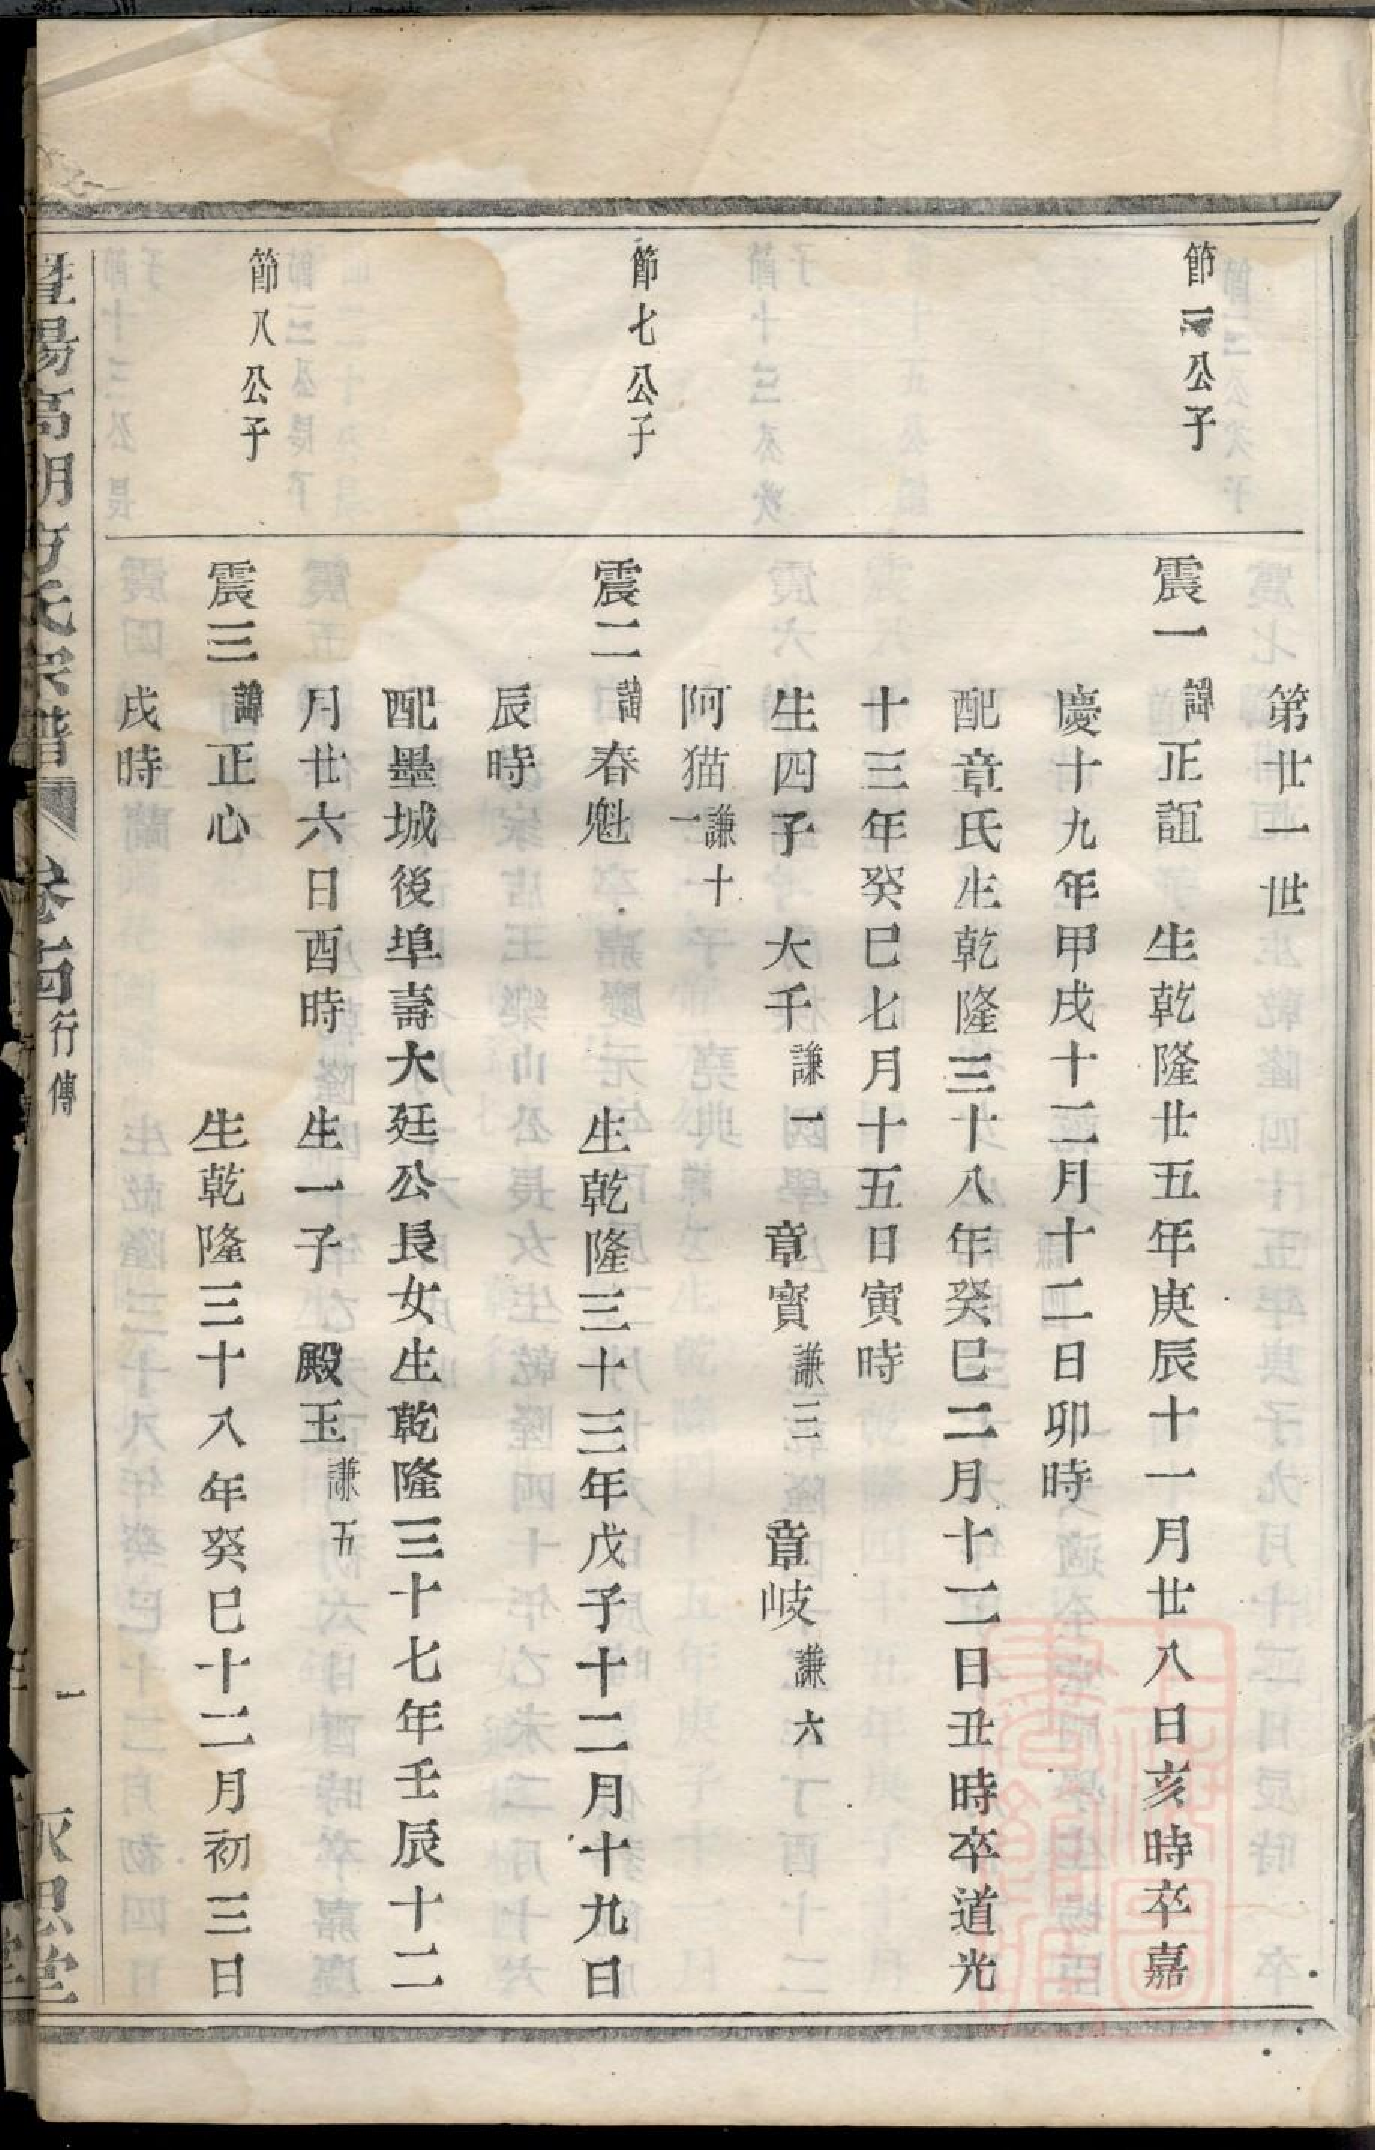 第廿一世
節二公子
震一 諱正誼 生乾隆廿五年庚辰十一月廿八日亥時卒嘉
慶十九年甲戌十二月十二日卯時
配章氏生乾隆三十八年癸巳二月十二日丑時卒道光
十三年癸巳七月十五日寅時
生四子 大千謙一 章寳謙三 章岐謙六
阿猫謙十一
節七公子
震二 諱春魁 生乾隆三十三年戊子十二月十九日
辰時
配墨城後埠壽大廷公長女生乾隆三十七年壬辰十二
月廿六日酉時 生一子 殿玉謙五
節八公子
震三 諱正心 生乾隆三十八年癸巳十二月初三日
戌時
暨陽高湖方氏宗譜 卷十四 行傳 一 永思堂